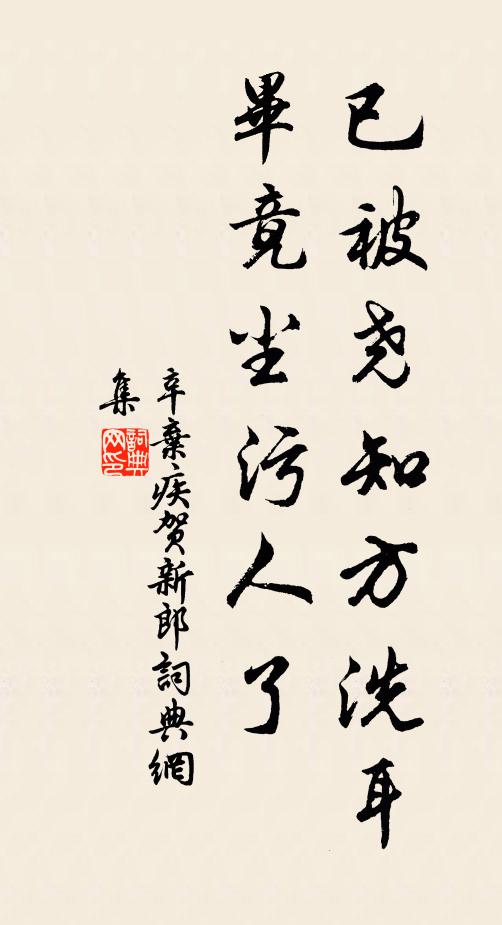 已被尧知方洗耳
畢竟尘污人了
辛棄疾贺新郎詞典網
集
詞典
网印